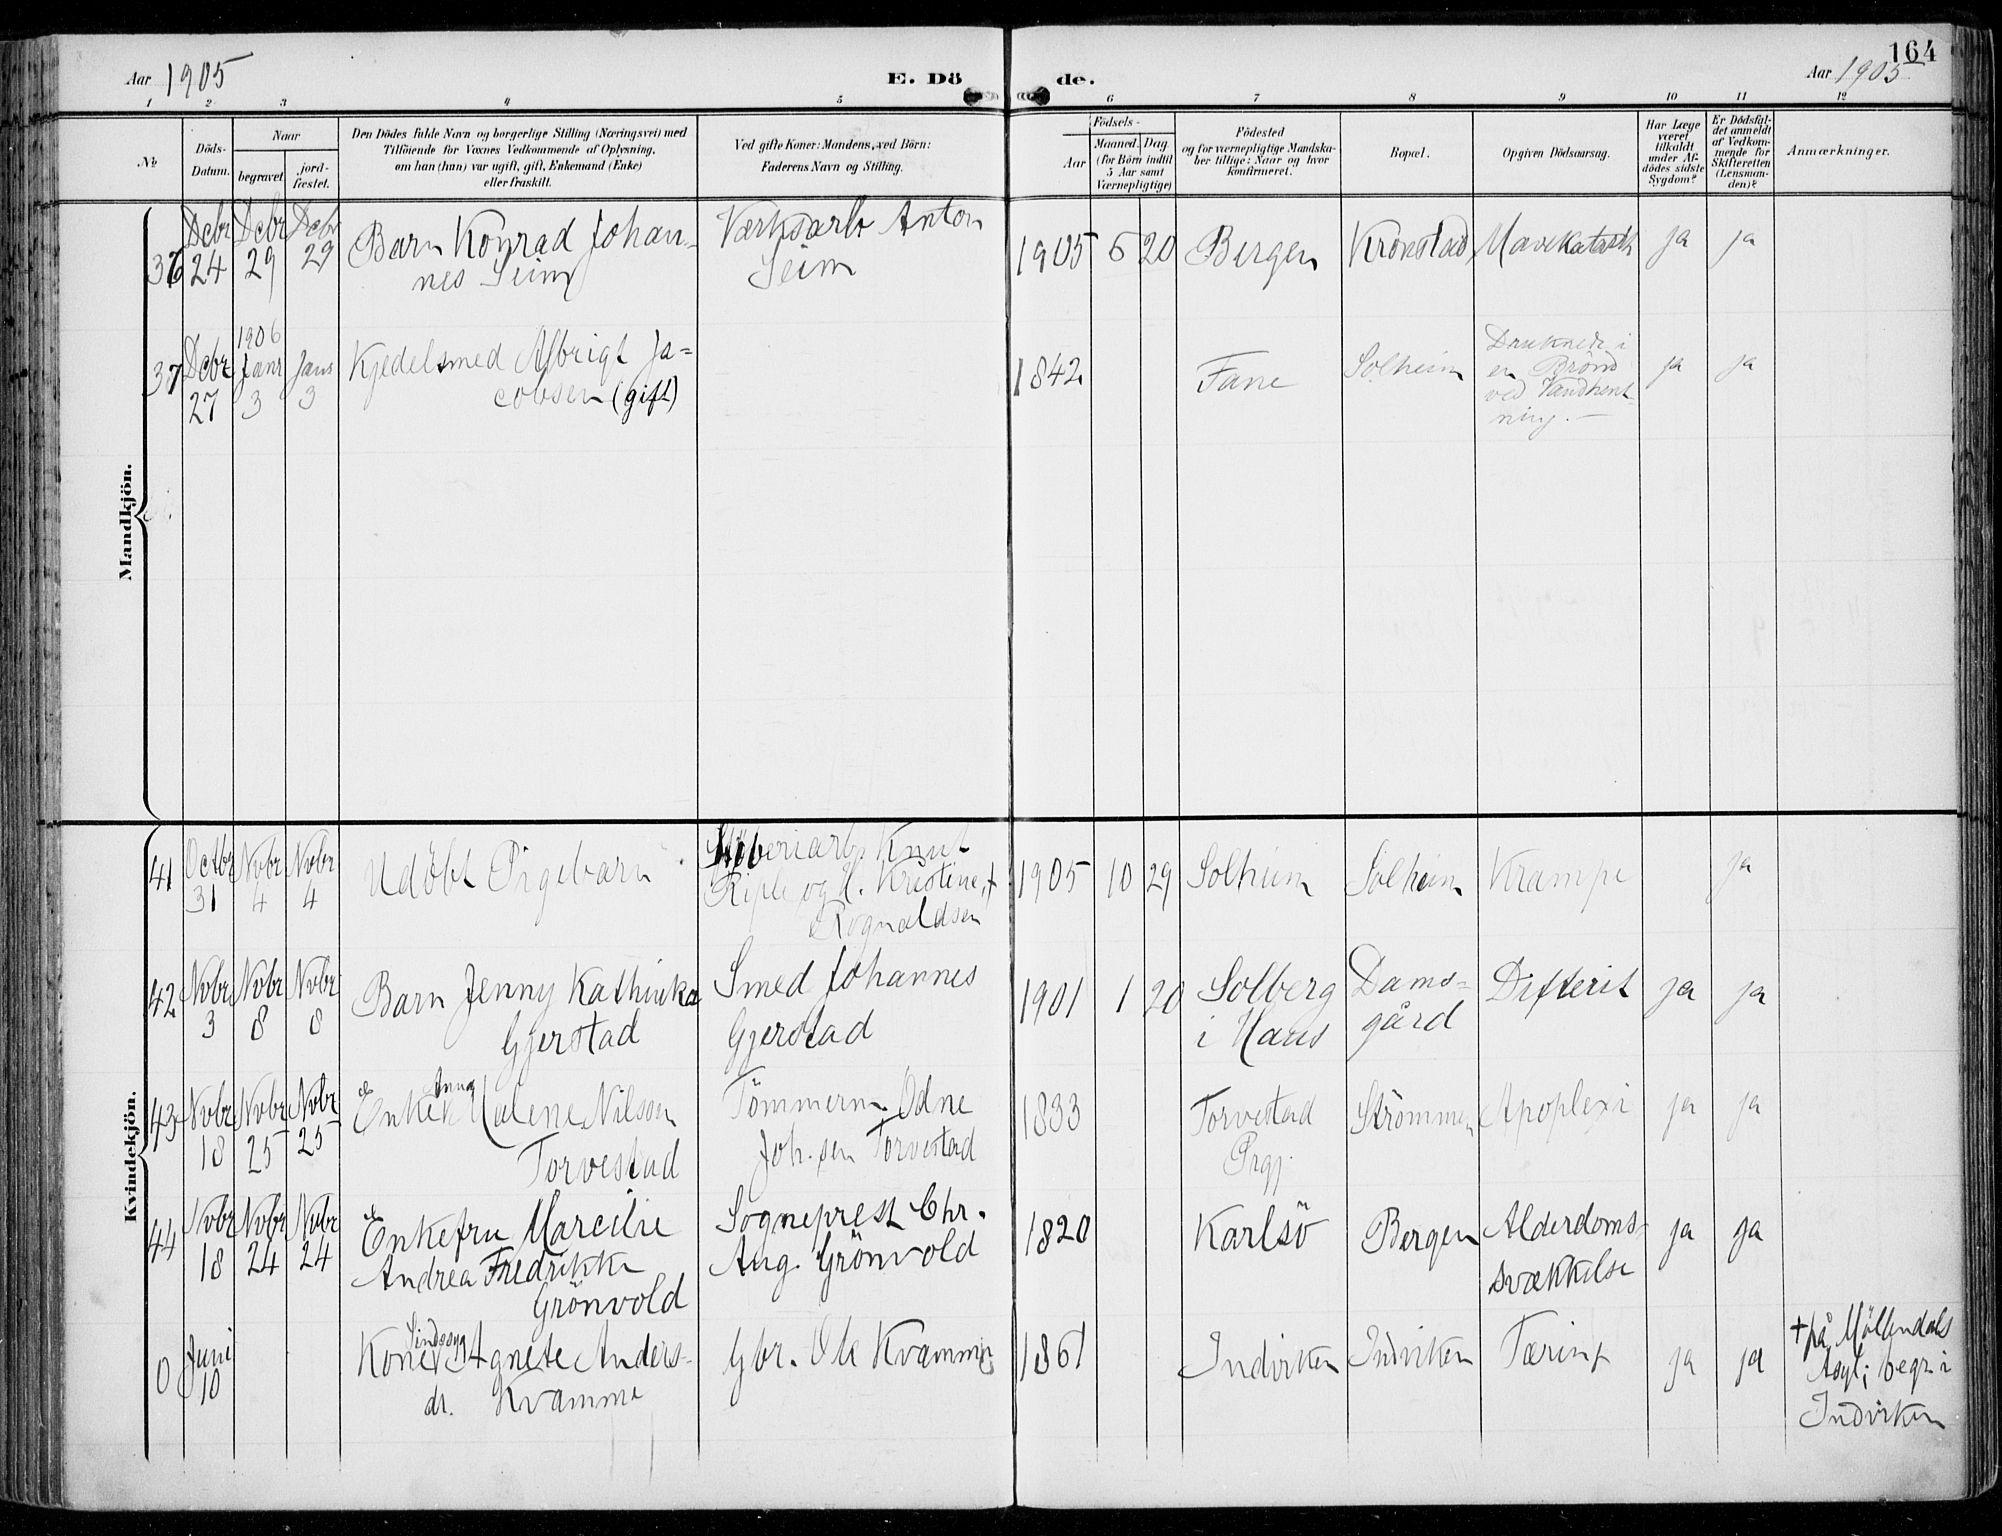 164
Aar 1905
E. Dö de.
Aar 1905
1 2 3 4 5 6 7 8 9 10 11 12
No
Döds-
Datum.
Naar
begravet.
jord-
fæstet.
Den Dödes fulde Navn og borgerlige Stilling (Næringsvei) med
Tilföiende for Voxnes Vedkommende af Oplysning,
om han (hun) var ugift, gift, Enkemand (Enke)
eller fraskilt.
Ved gifte Koner: Mandens, ved Börn:
Faderens Navn og Stilling.
Födsels-
Aar
Maaned. Dag
(for Börn indtil
5 Aar samt
Værnepligtige)
Födested
og for værnepligtige Mandska-
ber tillige: Naar og hvor
konfirmeret.
Bopæl.
Opgiven Dödsaarsag.
Har Læge
været
tilkaldt
under Af-
dödes sidste
Sygdom?
Er Dödsfal-
det anmeldt
af Vedkom-
mende for
Skifteretten
(Lensman-
den)?
Anmærkninger.
Mandkjön.
36
Dcbr
24
Dcbr
29
Dcbr
29
Barn Konrad Johan-
nes Seim
Værksarb Anton
Seim
1905 5 20 Bergen Kronstad Mavekatarrh ja ja
37
Dcbr
27
1906
Janr
3
Janr
3
Kjedelsmed Albrigt Ja=
cobsen (gift)
1842 Fane Solheim
Druknede i
en Brönd
ved Vandhent-
ning. -
ja ja
Kvindekjön.
41
Octbr
31
Nvbr
4
Nvbr
4
Udöbt Pigebarn
Knut
Riple og h. Kristine
Rognaldsen
1905 10 29 Solheim Solheim Krampe ja
42
Nvbr
3
Nvbr
8
Nvbr
8
Barn Jenny Kathinka
Gjerstad
Smed Johannes
Gjerstad
1901 1 20
Solberg
i Haus
Dams-
gård
Difterit ja ja
43
Nvbr
18
Nvbr
25
Nvbr
25
Anna
Enke Malene Nilson
Torvestad
Tömmerm. Odne
Joh.sen Torvestad
1833
Torvestad
Prgj.
Strömmen Apoplexi ja ja
44
Nvbr
18
Nvbr
24
Nvbr
24
Enkefru Marcilie
Andrea Fredrikke
Grönvold
Sogneprest Chr.
Aug. Grönvold
1820 Karlsö Bergen
Alderdoms-
svækkelse
ja ja
0
Juni
10
Sindssyg
Kone Agnete Anders-
dr. Kvamme
Gbr. Ole Kvamme
1861 Indviken Indviken Tæring ja ja
+ på Möllendals
Asyl; begr. i
Indviken